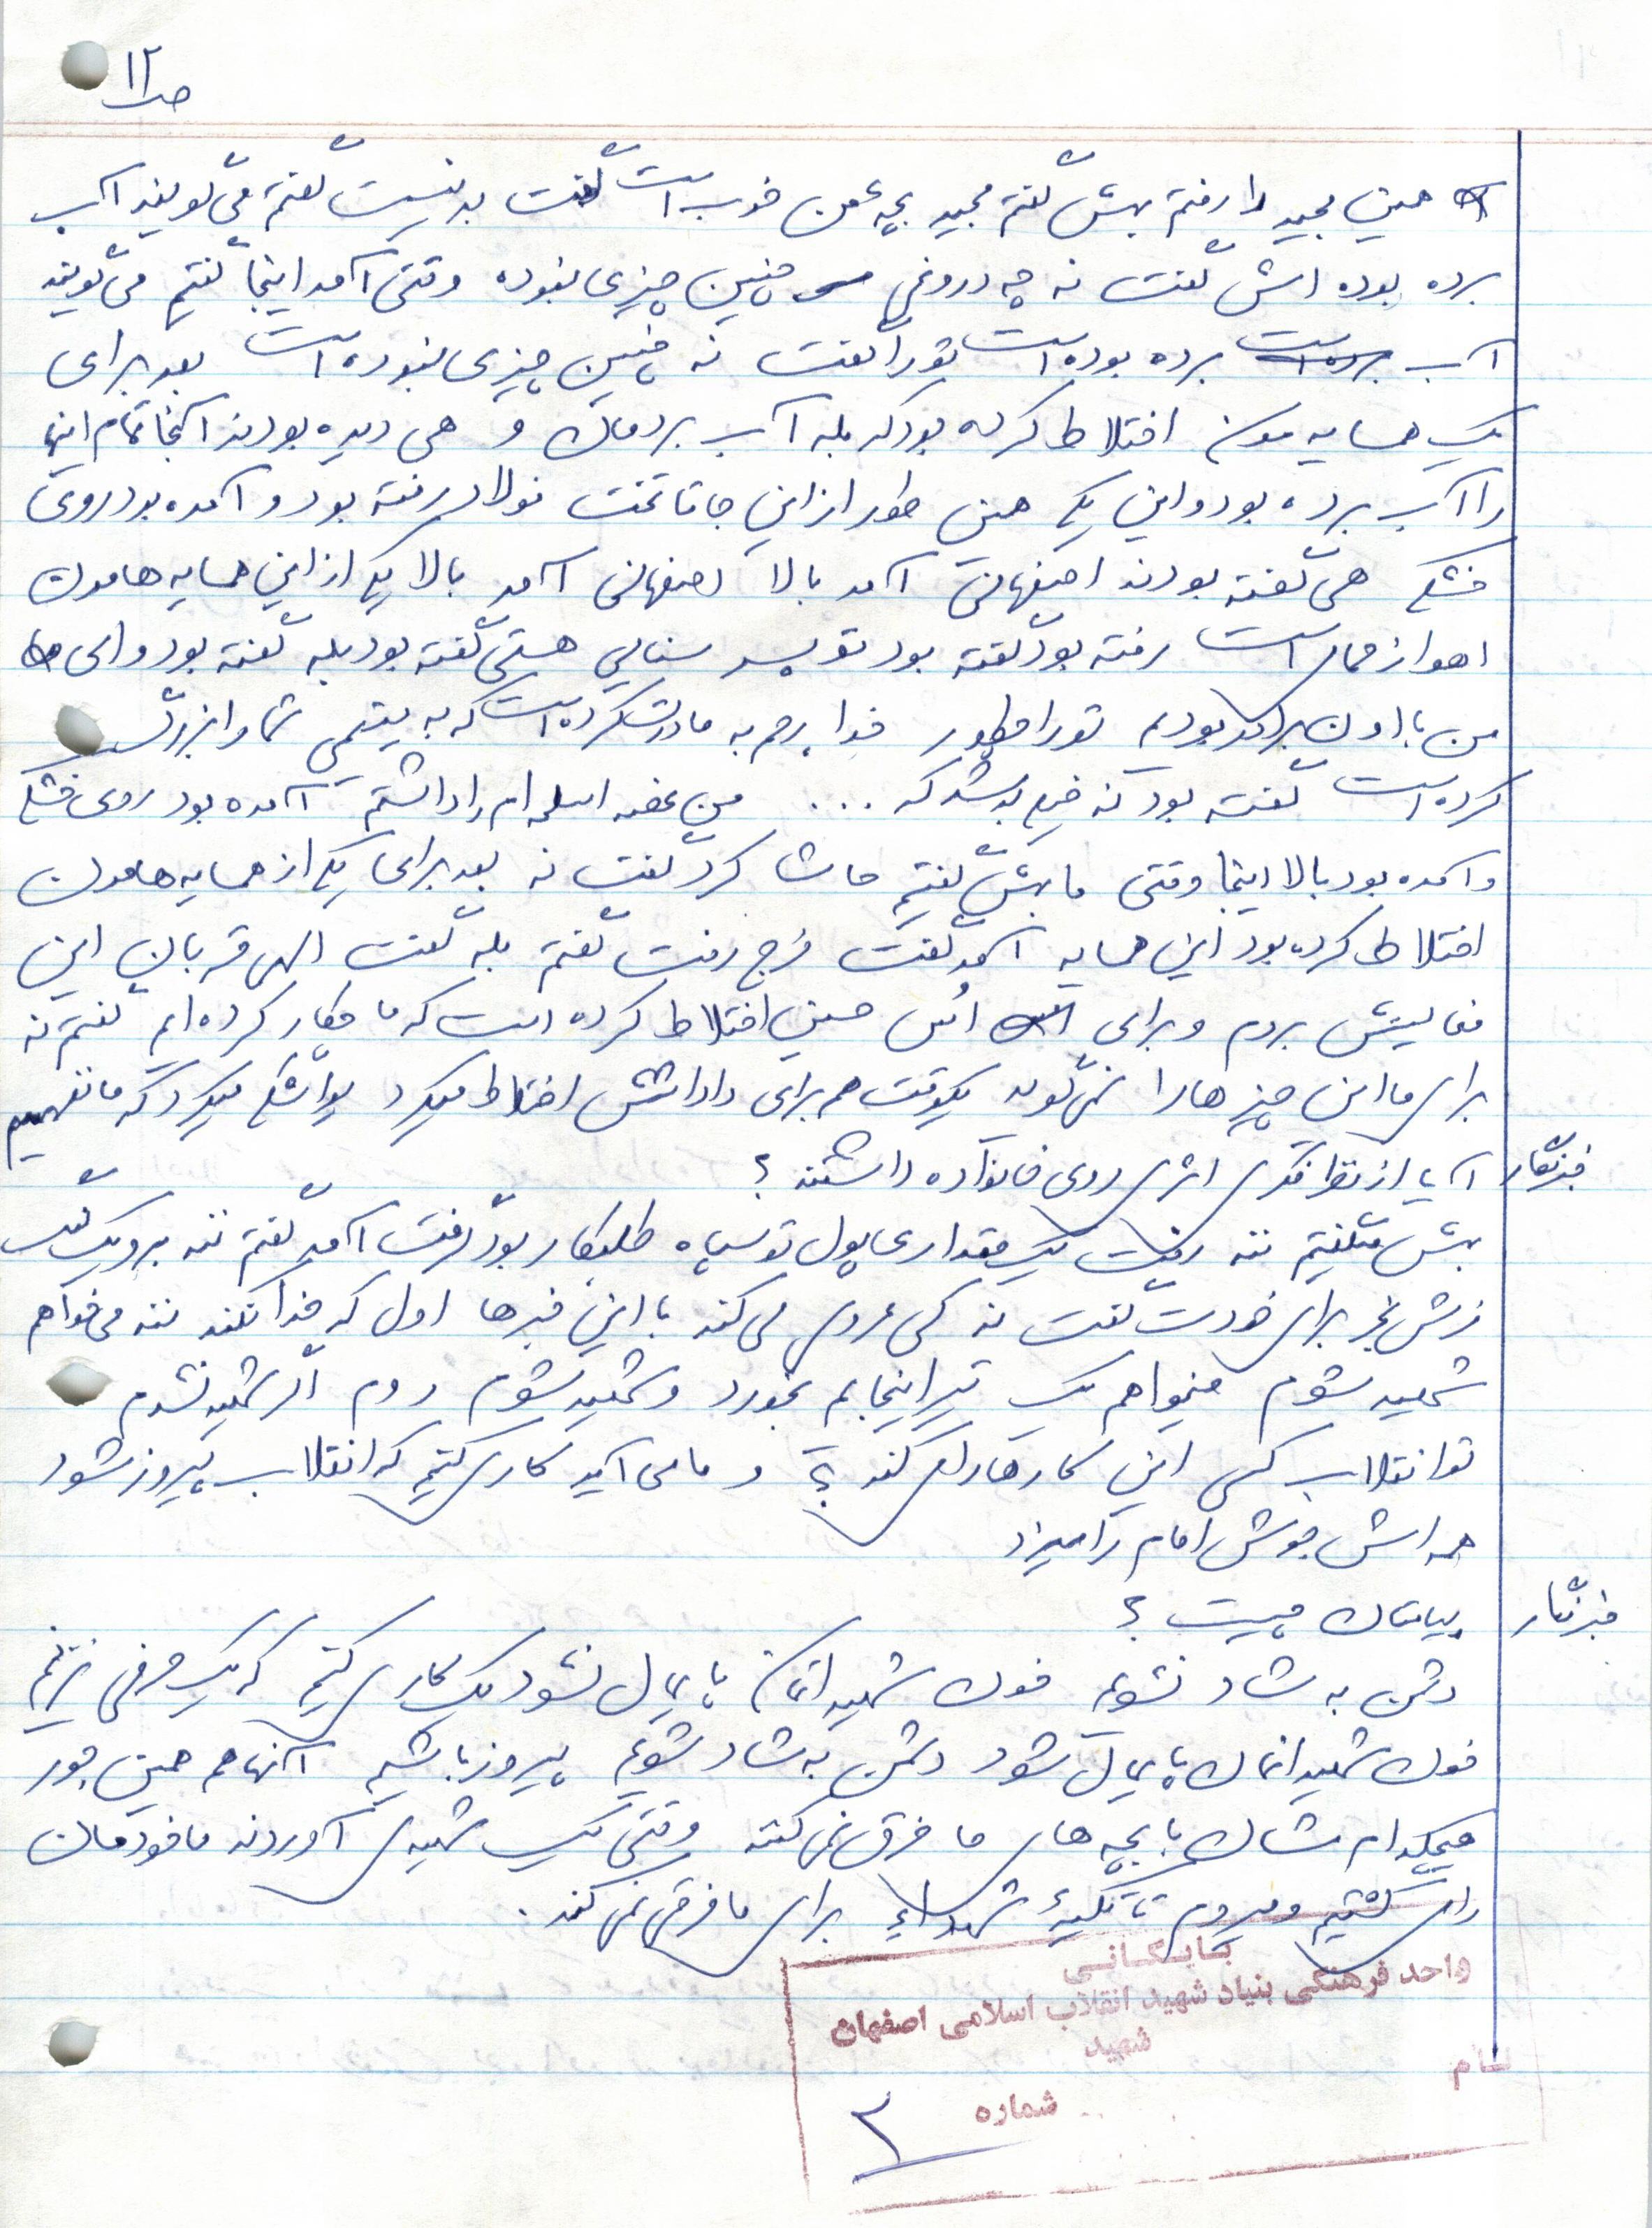 ص ۱۲
همین مجید را رفتم بهش گفتم مجید بچه عمن خوب است گفت بد نیست گفتم می گویند آب
برده بوده اش گفت نه چه دروغی چنین چیزی نبوده وقتی آمد اینجا گفتیم می گویند
آب برده است برده بوده است تو را گفت نه چنین چیزی نبوده است بعد برای
یک همسایه مون اختلاط کرده بود که بله آب بردمان و هی دیده بودند آنجا تمام اینها
را آب برده بود و این یکی همین طور از این جا تا تخت فولاد رفته بود و آمده بود روی
خشکی هی گفته بودند اصفهانی آمد بالا اصفهانی آمد بالا یکی از این همسایه هامون
اهواز هم است رفته بود گفته بود تو پسر سنایی هستی گفته بود بله گفته بود وای
من با اون برادر بودیم تو را چطور خدا رحم به مادرت کرده است که به یتیمی شما را بزرگ
کرده است گفته بود نه خیلی بد شد که ... من غصه اسلحه ام را داشتم آمده بود روی خشکی
و آمده بود بالا اینجا وقتی ما بهش گفتیم حاشا کرد گفت نه بعد برای یکی از همسایه هامون
اختلاط کرده بود این همسایه آمد گفت فرج رفت گفتم بله گفت الهی قربان این
فعالیتش بروم و برای اُس حسین اختلاط کرده است که ما چکار کرده ایم گفتم نه
برای ما این چیزها را نمی گوید یکوقت هم برای داداشش اختلاط میکرد یواشکی میکرد که ما نفهمیم
خبرنگار آیا از نظر فکری اثری روی خانواده داشتند ؟
بهش گفتیم ننه رفت یک مقداری پول تو سپاه طلبکار بود گرفت آمد گفتم ننه برو یک تیکه
فرش بخر برای خودت گفت نه کی عروسی می کند با این خبرها اول که خدا نکند ننه می خواهم
شهید شوم میخواهم یک تیر اینجایم بخورد و شهید شوم دوم اگر شهید نشدم
تو انقلاب کسی این کارها را می کند ؟ و ما می آیید کاری کنیم که انقلاب پیروز شود
همه اش جوش امام را میزد
خبرنگار پیامتان چیست ؟
دشمن به شاد نشویم خون شهیدانمان پایمال نشود یک کاری کنیم که یک حرفی نزنیم
خون شهیدانمان پایمال شود دشمن به شاد شویم پیروز باشیم آنها هم همین جور
هیچکدام شان با بچه های ما فرق نمی کنند وقتی یک شهیدی آوردند ما خودمان
را می کشیم و میرویم تا تکیهٔ شهداء برای ما فرقی نمی کند .
بایگانی
واحد فرهنگی بنیاد شهید انقلاب اسلامی اصفهان
شهید
نام
شماره ۳